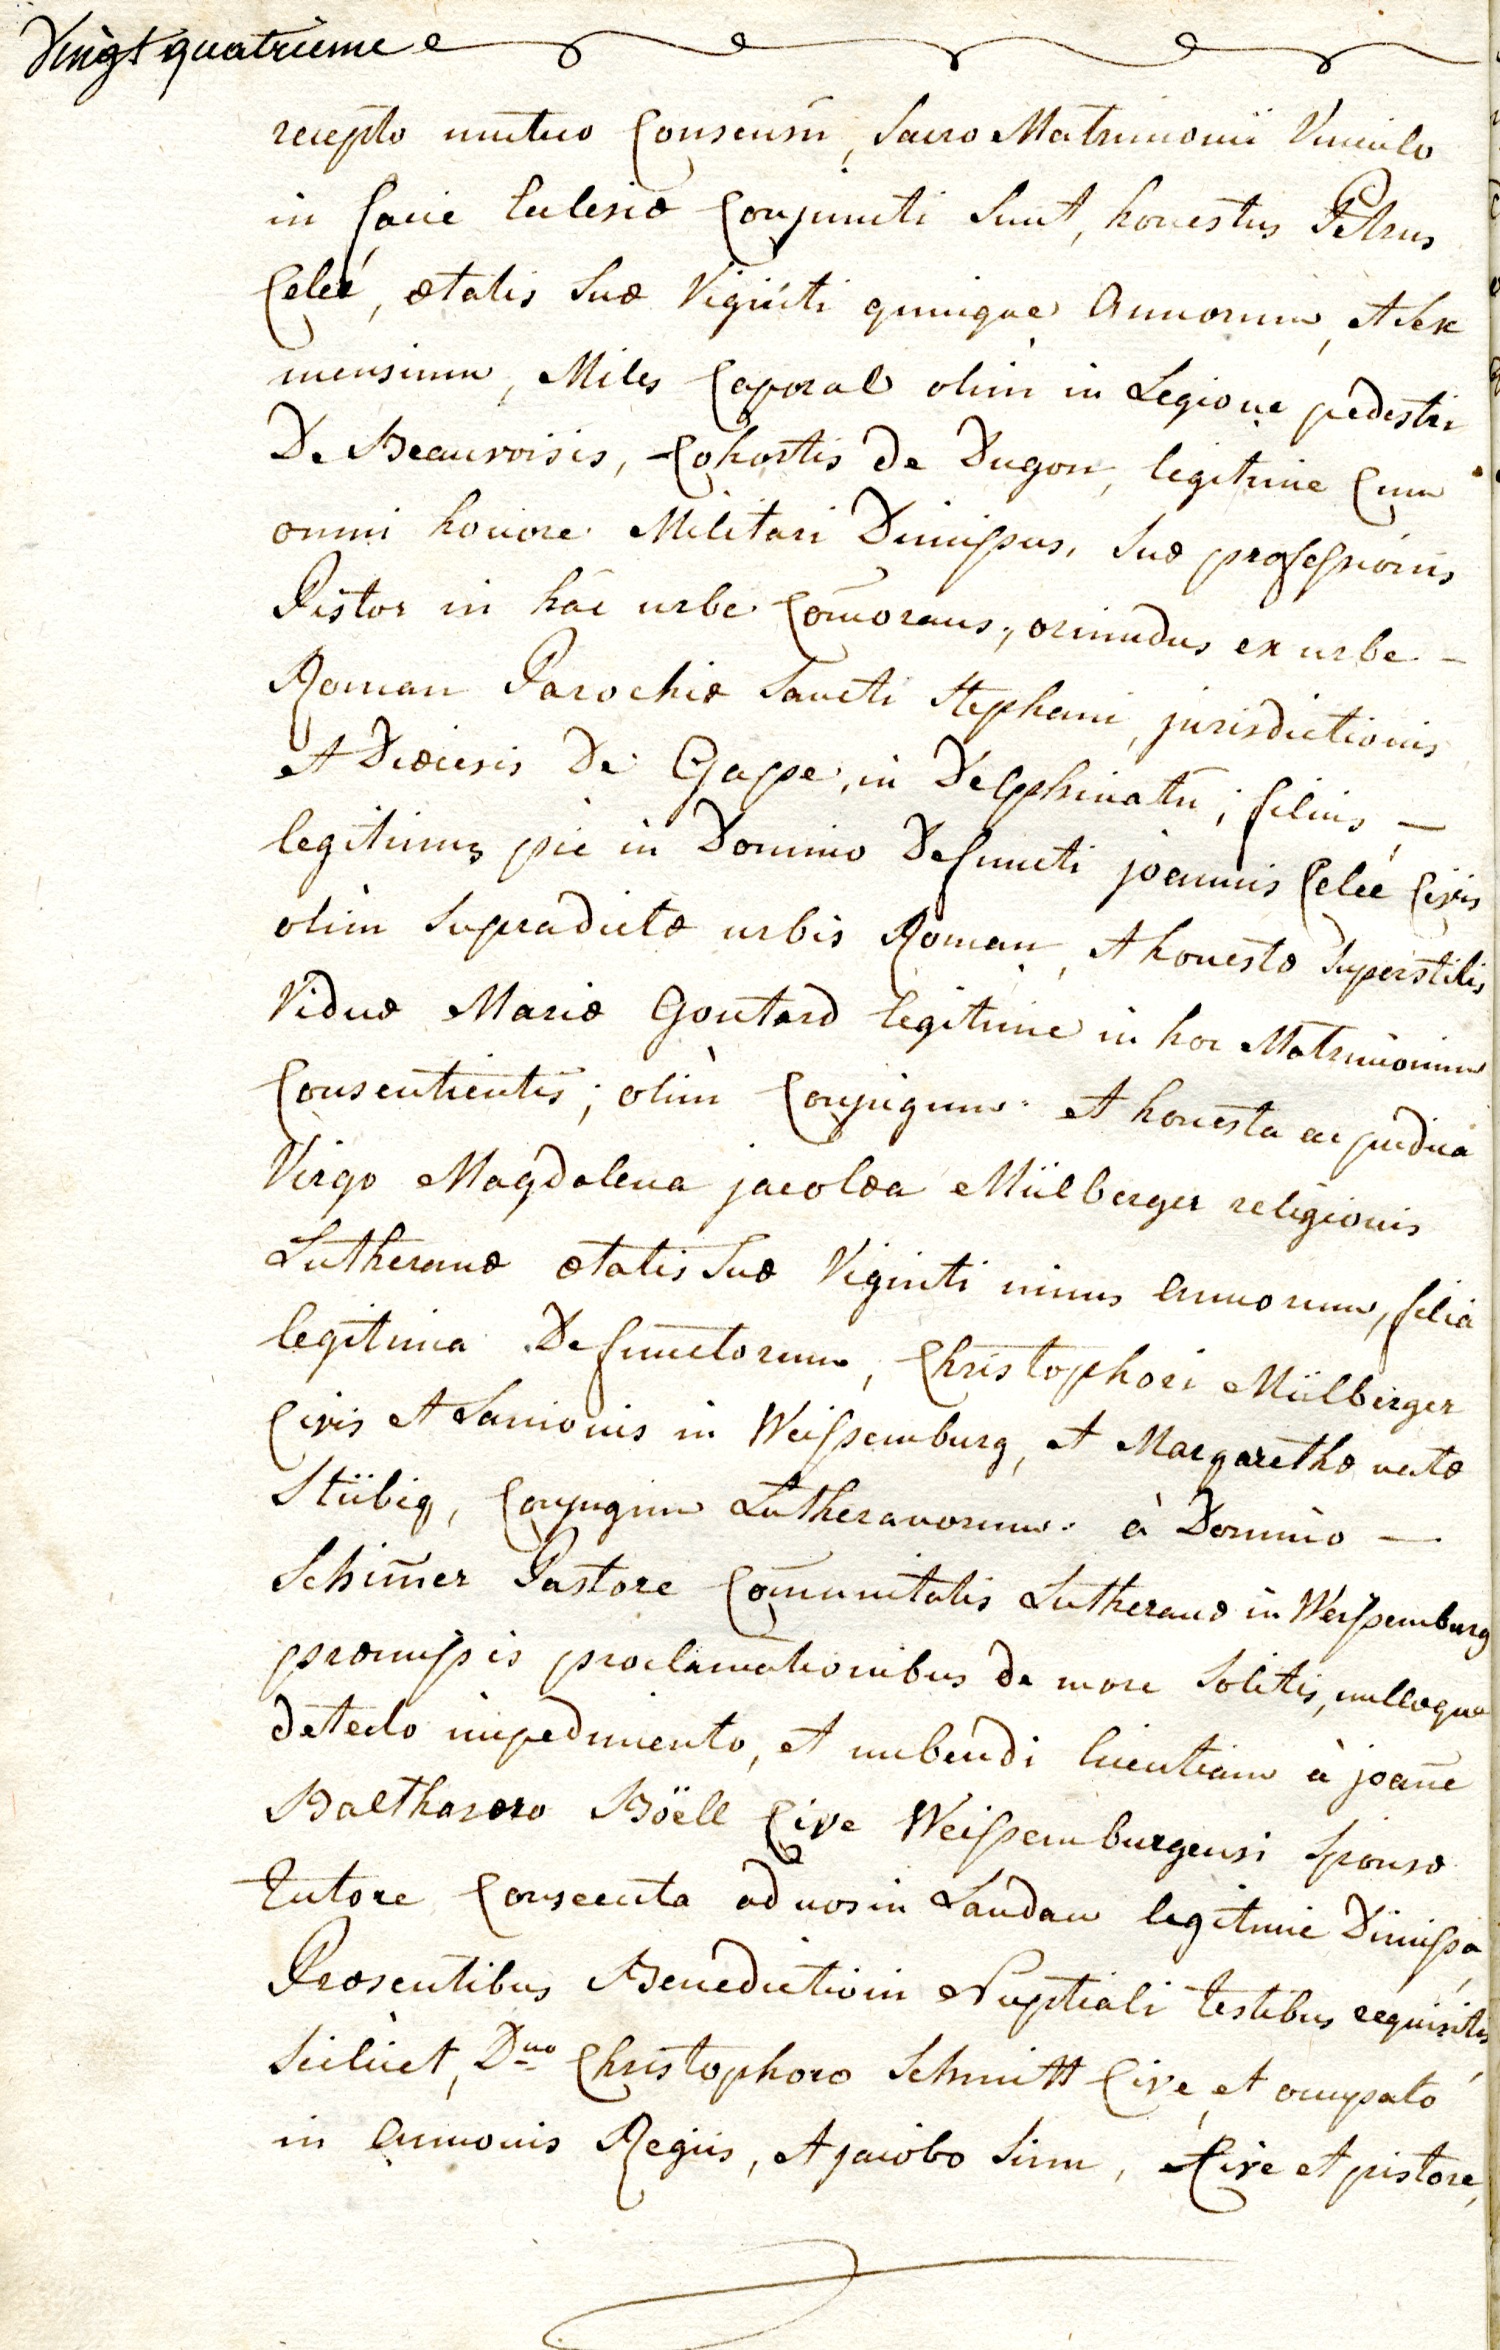 Vingt quatrieme
recepto mutuo Consensu, Sacro Matrimonii Vinculo
in facie Ecclesiæ Conjuncti Sunt, honestus Petrus
Celeé, ætatis Suæ Viginti quinque annorum, et Sex
mensium, Miles Caporal olim in Legione pedestri
De Beauvoisis, Cohortis de Dugon, legitime Cum
omni honore Militari Dimissus, Suæ professionis
Pistor in hâc urbe Com̄orans, oriundus ex urbe –
Roman Parochiæ Sancti Stephani, jurisdictionis
et Diœcesis De Gappe, in Delphinatu; filius –
legitimus piè in Domino Defuncti joannis Celeé Civis
olim Supradictæ urbis Roman, et honestæ Superstitis
Viduæ Mariæ Goutard legitime in hoc Matrimonium
Consentientis; olim Conjugum. et honesta ac pudica
Virgo Magdalena jacobæa Mülberger religionis
Lutheranæ ætatis Suæ Viginti unius annorum, filia
legitima Defunctorum, Christophori Mülberger
Civis et Lanionis in Weissemburg, et Margarethæ natæ
Stübig, Conjugum Lutheranorum. à Domino —
Schim̄er Pastore Com̄unitatis Lutheranæ in Weissemburg
præmissis proclamationibus de more Solitis, nulloque
detecto impedimento, et nubendi licentiam à joan̄e
Balthasaro Böell Cive Weissemburgensi Sponsæ
Tutore Consecuta ad nos in Landau legitime Dimissa,
Præsentibus Benedictioni Nuptiali testibus requisitis
Scilicet, Dno Christophoro Schmitt Cive, et occupato
in annonis Regiis, et jacobo Sinn, Cive et pistore,